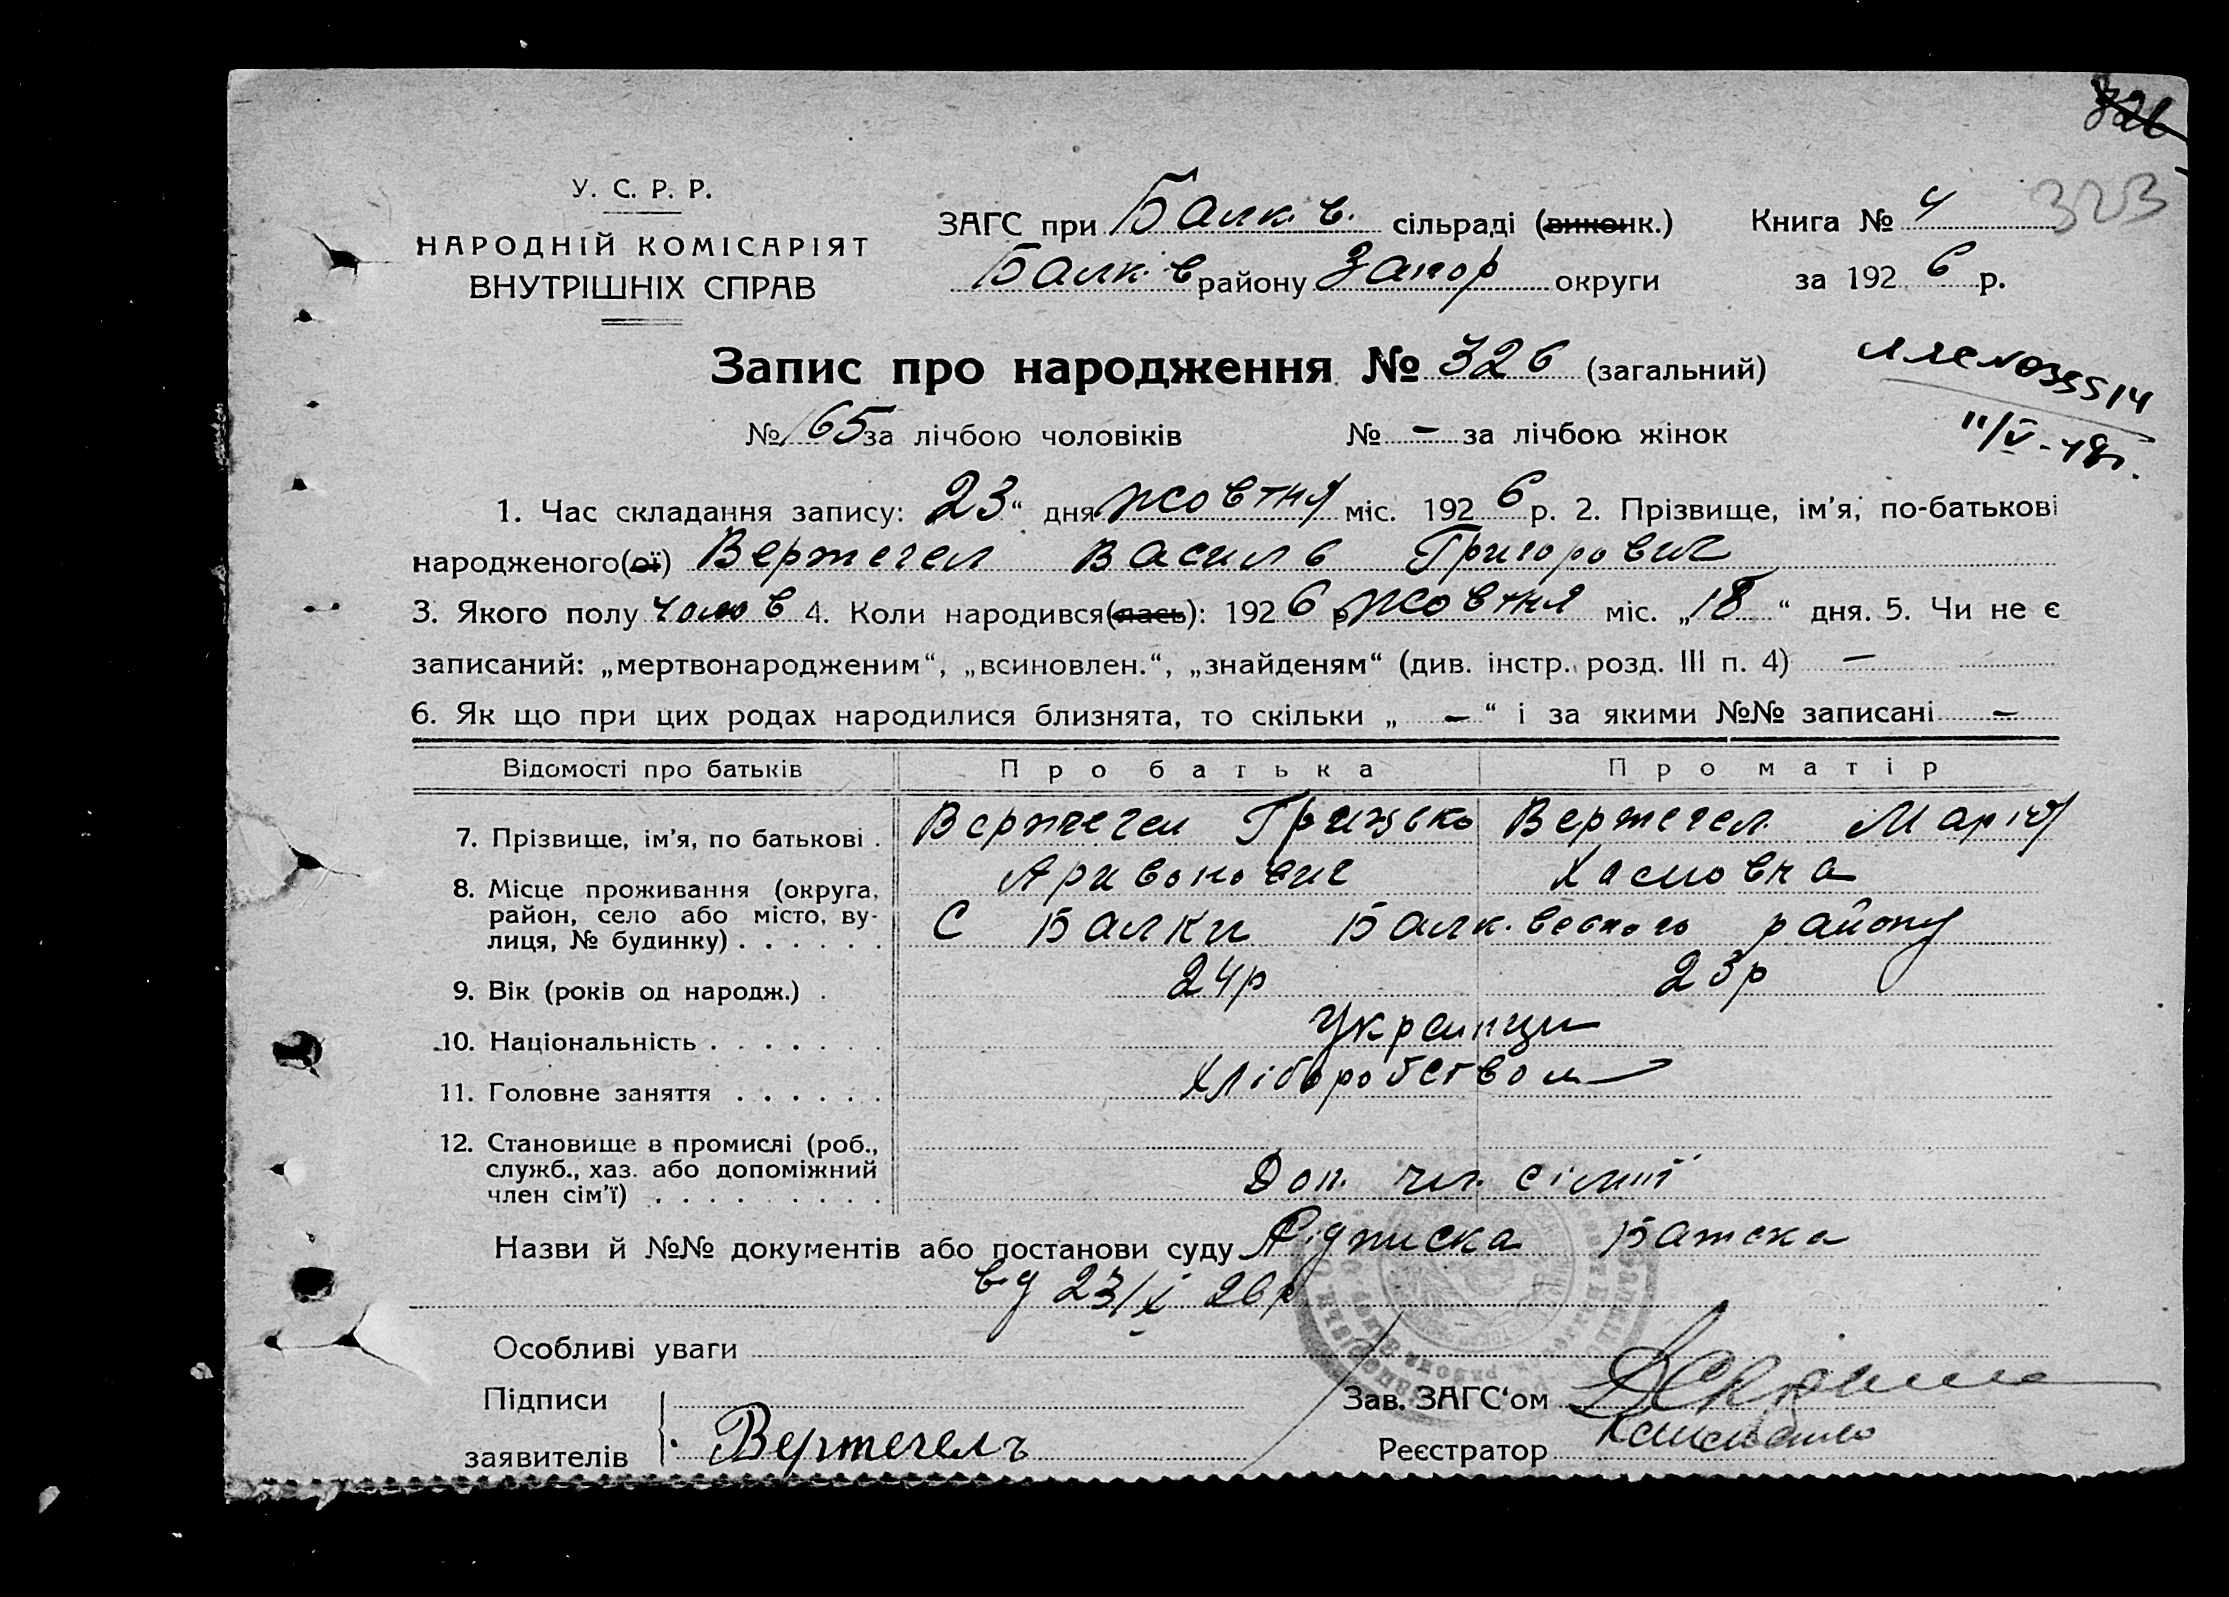 326
323
У. С. Р. Р.
НАРОДНІЙ КОМІСАРІЯТ
ВНУТРІШНІХ СПРАВ
ЗАГС при Балк. в. сільраді (виконк.)
Балк. в району Запор округи
Книга № 4
за 1926 р.
Запис про народження № 326 (загальний)
ЯЛС № 035514
11/V-48г.
№ 165 за лічбою чоловіків № — за лічбою жінок
1. Час складання запису: 23“ дня жовтня міс. 1926 р. 2. Прізвище, ім'я, по-батькові
народженого(ої) Вертегел Василь Григорович
3. Якого полу чолов 4. Коли народився(лась): 1926 р жовтня міс. „18“ дня. 5. Чи не є
записаний: „мертвонародженим“, „всиновлен.“, „знайденям“ (див. інстр. розд. III п. 4) —
6. Як що при цих родах народилися близнята, то скільки „ — “ і за якими №№ записані —
Відомості про батьків Про батька Про матір
7. Прізвище, ім'я, по батькові . Вертегел Грицько Вертегел Марія
8. Місце проживання (округа,
район, село або місто, ву-
лиця, № будинку) . . . . . . С Балки Балк. району
9. Вік (років од народж.) . 24р 23р
10. Національність . . . . . . . Українци
11. Головне заняття . . . . . . Хліборобством
12. Становище в промислі (роб.,
служб., хаз. або допоміжний
член сім'ї) . . . . . . . . . Доп. чл. сімії
Назви й №№ документів або постанови суду Підписка Батька
від 23/X 26р
Особливі уваги
Підписи
заявителів Вертегелъ
Зав. ЗАГС‘ом
Реєстратор